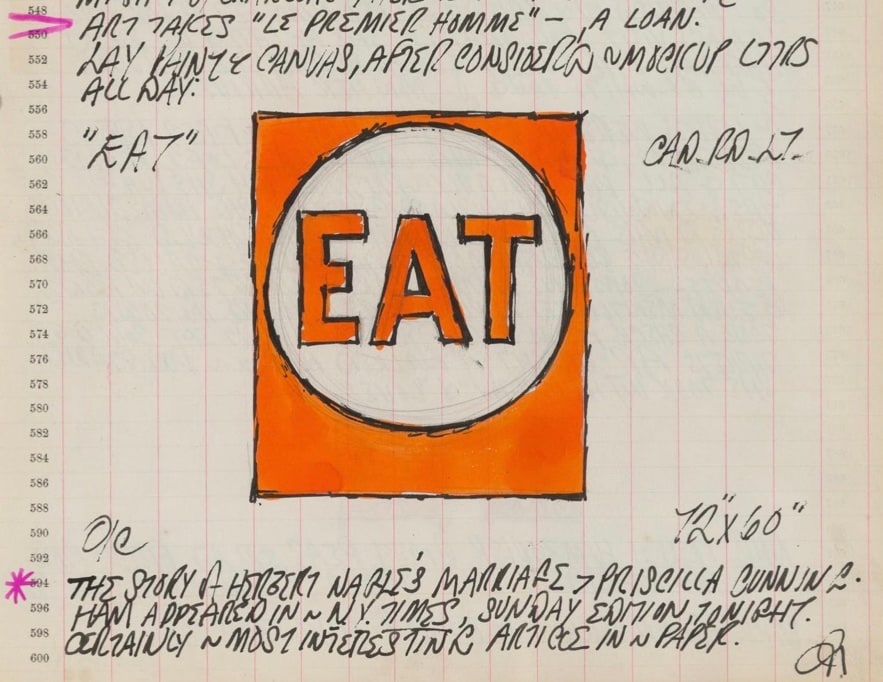 548
ART TAKES "LE PREMIER HOMME"–, A LOAN.
550
LAY PAINT CANVAS, AFTER ~ MOCKUP LTTRS
552
554
ALL DAY:
556
558
"EAT" CAD. RD. LT.
560
562
564
566
568
EAT
570
572
574
576
578
580
582
584
586
588
72"X60"
590
O/C
592
594
* THE STORY OF HERBERT NAGLE'S MARRIAGE > PRISCILLA CUNNING-
596
HAM APPEARED IN ~ N.Y. TIMES, SUNDAY EDITION, TONIGHT.
598
CERTAINLY ~ MOST INTERESTING ARTICLE IN ~ PAPER.
600